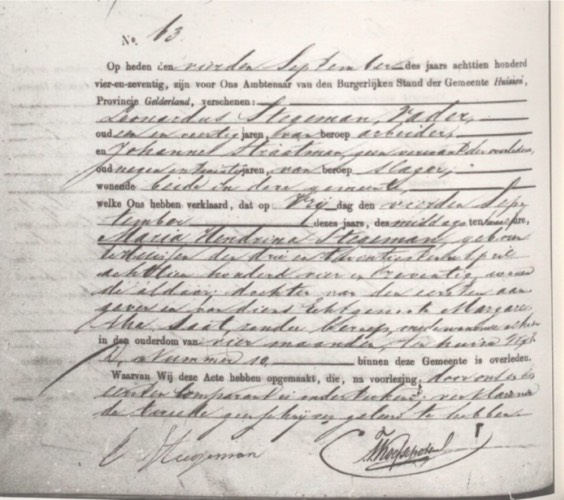 No. 63
Op heden den vierden September des jaars achttien honderd
vier-en-zeventig, zijn voor Ons Ambtenaar van den Burgerlijken Stand der Gemeente Huissen,
Provincie Gelderland, verschenen:
Leonardus Stegeman, Vader,
oud een en veertig jaren, van beroep arbeider,
en Johannes Straatman, geen verwant der overledene,
oud negen en twintig jaren, van beroep slager,
wonende beide in deze gemeente
welke Ons hebben verklaard, dat op Vrijdag den vierden Sep
tember dezes jaars, des middags ten twaalf ure,
Maria Hendrina Stegeman, geboren
te Huissen den drie en twintigsten April
achttien honderd vier en zeventig, wonende
aldaar, dochter van den eersten aan
gever en van diens echtgenoote Margare
tha Saat, zonder beroep, mede wonende alhier
in den ouderdom van vier maanden, ten huize Wijk
Nummer 10 binnen deze Gemeente is overleden.
Waarvan Wij deze Acte hebben opgemaakt, die, na voorlezing, door ons en den
eersten comparant is onderteekend, verklarende
de tweede geen schrijven geleerd te hebben.
L Stegeman